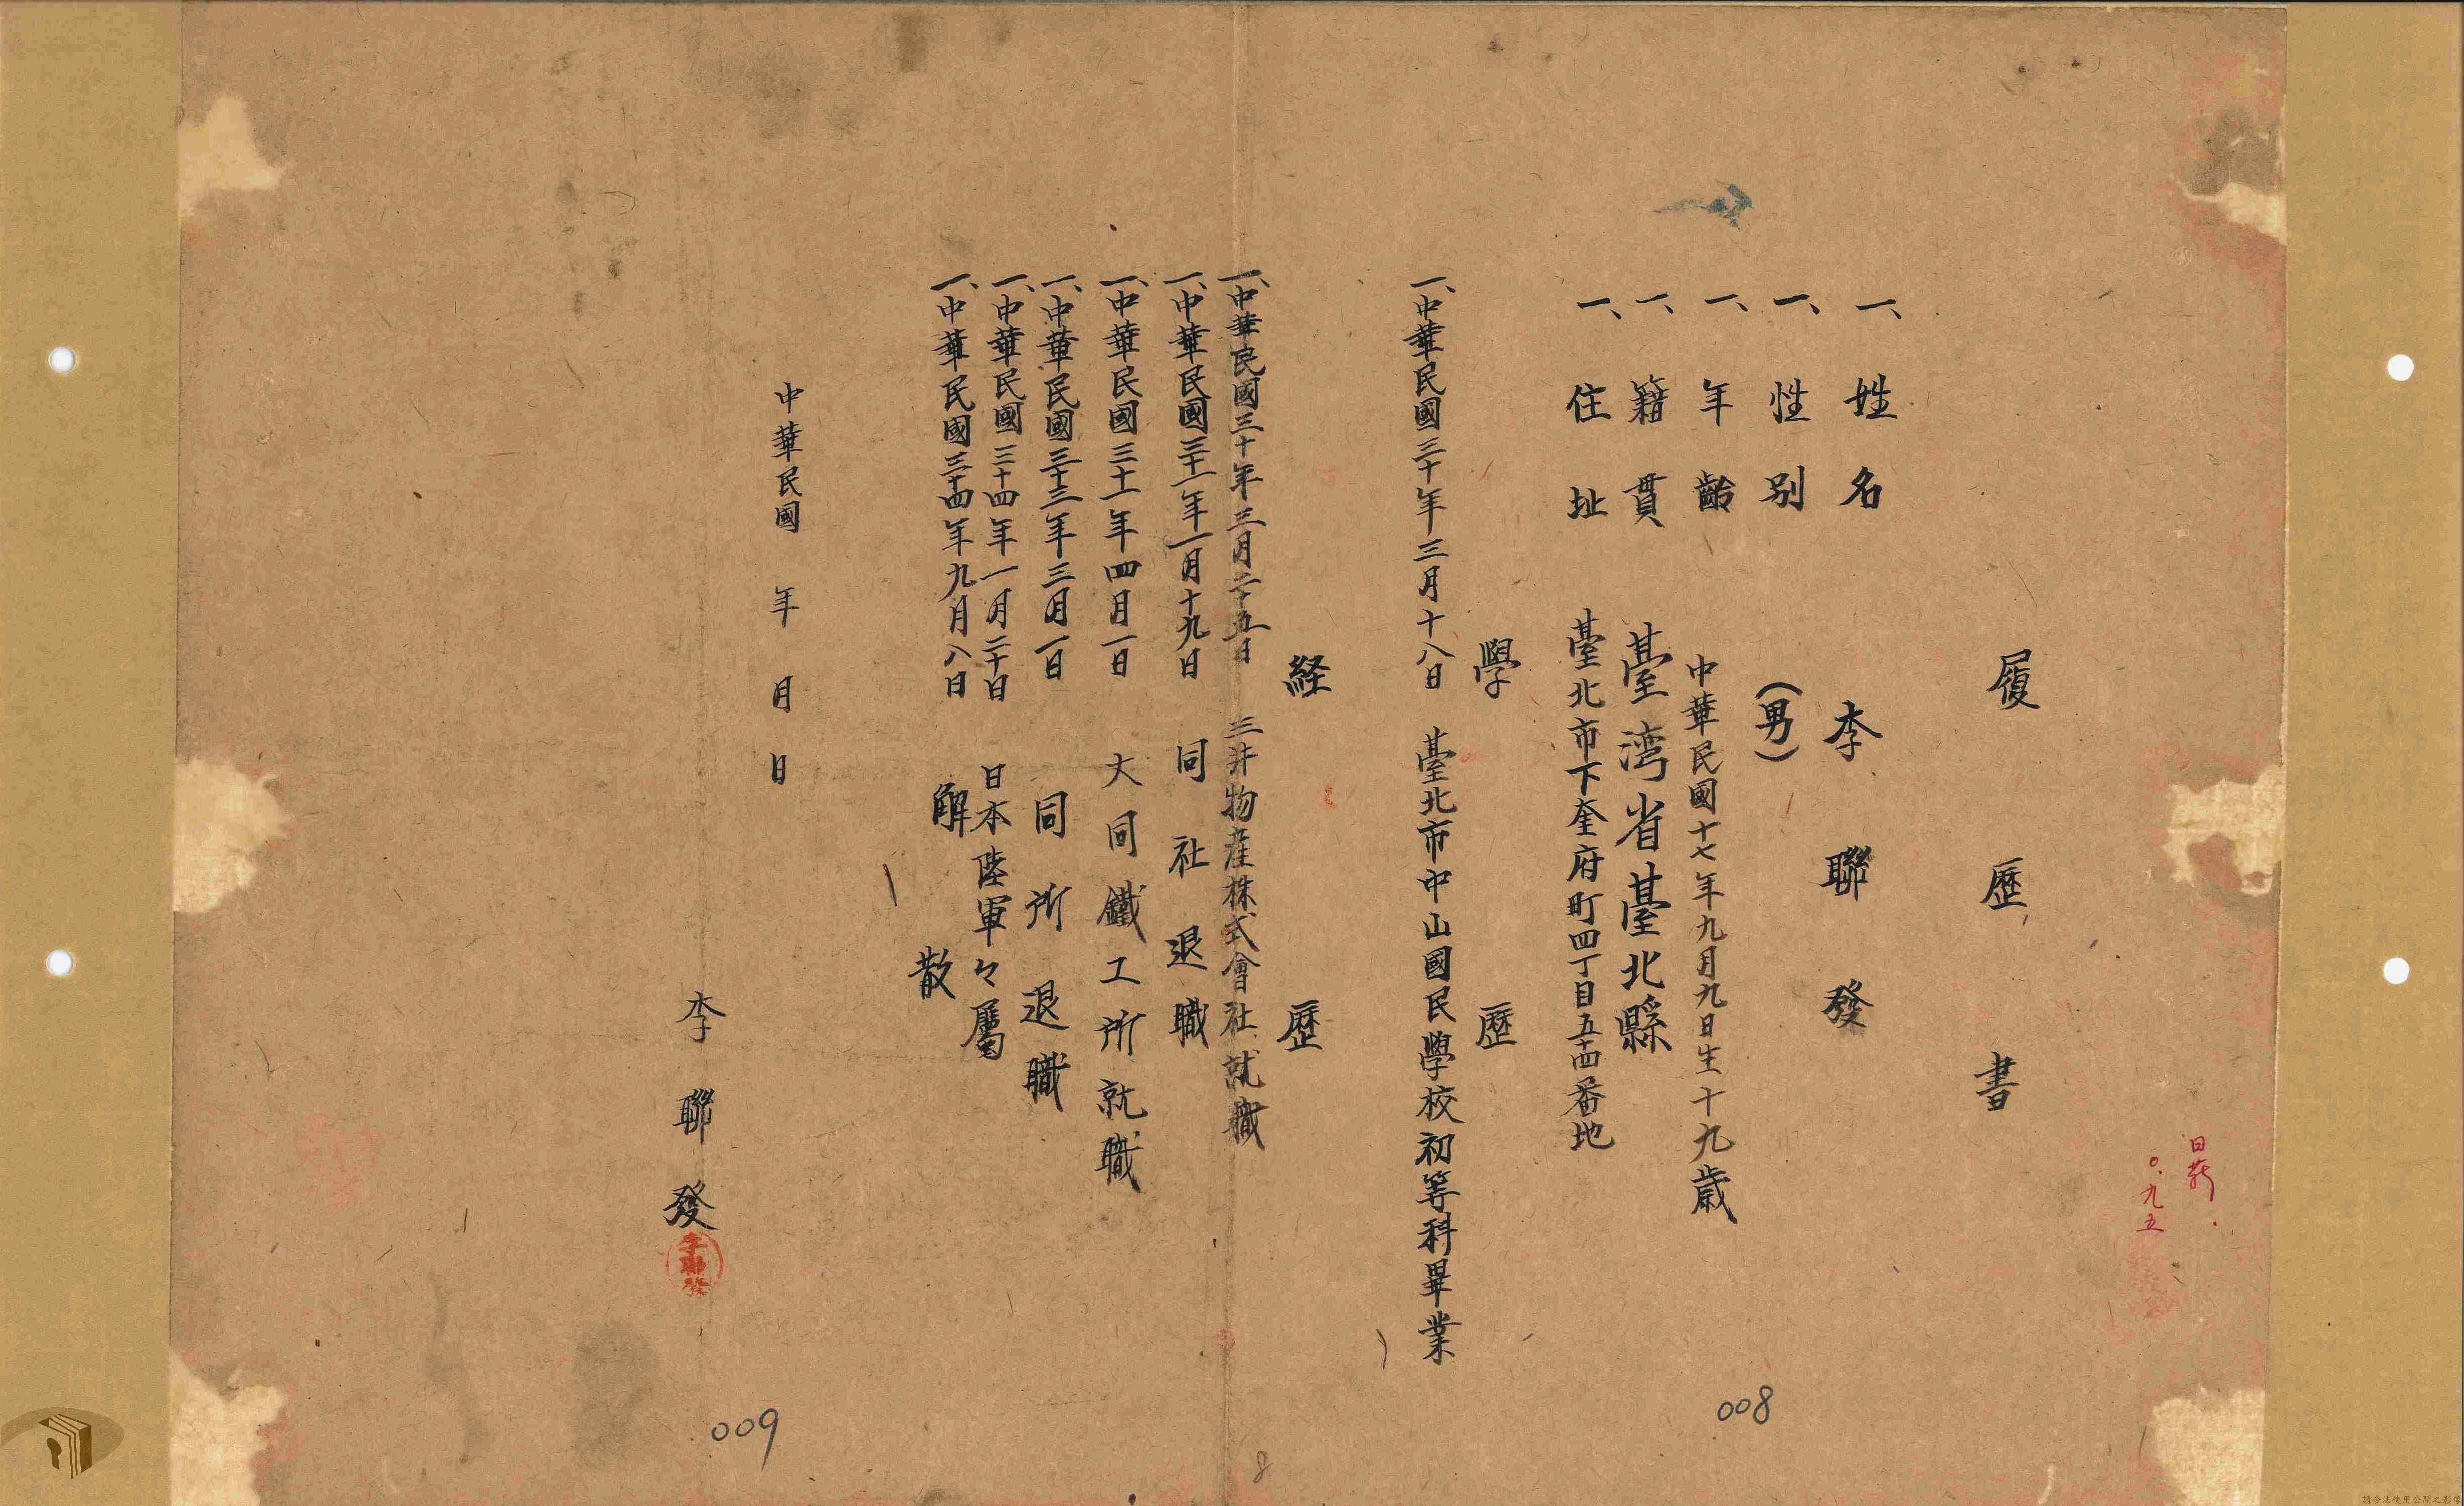 履歷書
一、姓名 李聯發
一、性別 (男)
一、年齡 中華民國十七年九月九日生十九歲
一、籍貫 臺湾省臺北縣
一、住址 臺北市下奎府町四丁目五十四番地
學歷
一、中華民國三十年三月十八日 臺北市中山國民學校初等科畢業
経歷
一、中華民國三十年三月二十五日 三井物產株式會社就職
一、中華民國三十一年一月十九日 同社退職
一、中華民國三十一年四月一日 大同鐵工所就職
一、中華民國三十三年三月一日 同所退職
一、中華民國三十四年一月二十日 日本陸軍々屬
一、中華民國三十四年九月八日 解散
中華民國 年 月 日
李聯發
李聯發
日薪
〇.九五
008
009
8